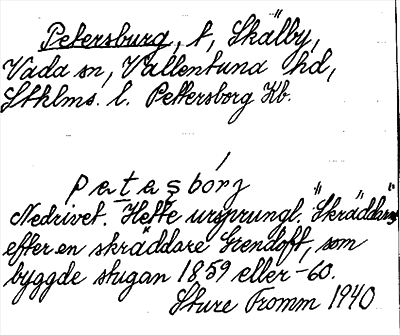 Petersburg, t, Skälby,
Vada sn, Vallentuna hd,
Sthlms. l. Pettersborg Kb.
pętaşbórj
Nedrivet. Hette ursprungl. "Skräddars"
efter en skräddare Grendoft, som
byggde stugan 1859 eller -60.
Sture Fromm 1940